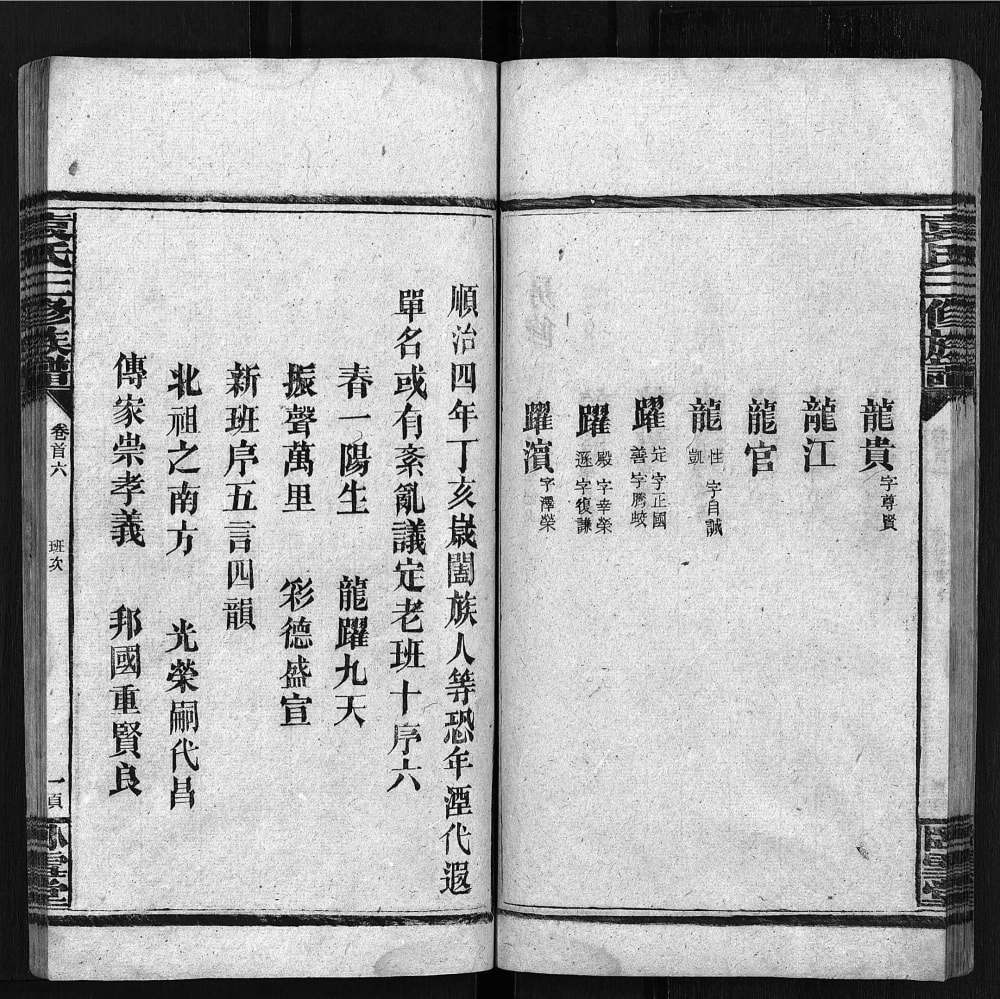 龍貴字尊賢
龍江
龍官
龍性字自誠
凱
躍定字正國
善字騰蛟
躍殿字幸榮
遜字復謙
躍濱字澤榮
順治四年丁亥嵗闔族人等恐年湮代遐
單名或有紊亂議定老班十序六
春一陽生 龍躍九天
振聲萬里 彩德盛宣
新班序五言四韻
北祖之南方 光榮嗣代昌
傳家崇孝義 邦國重賢良
袁氏三修族譜 卷首六 班次 一頁